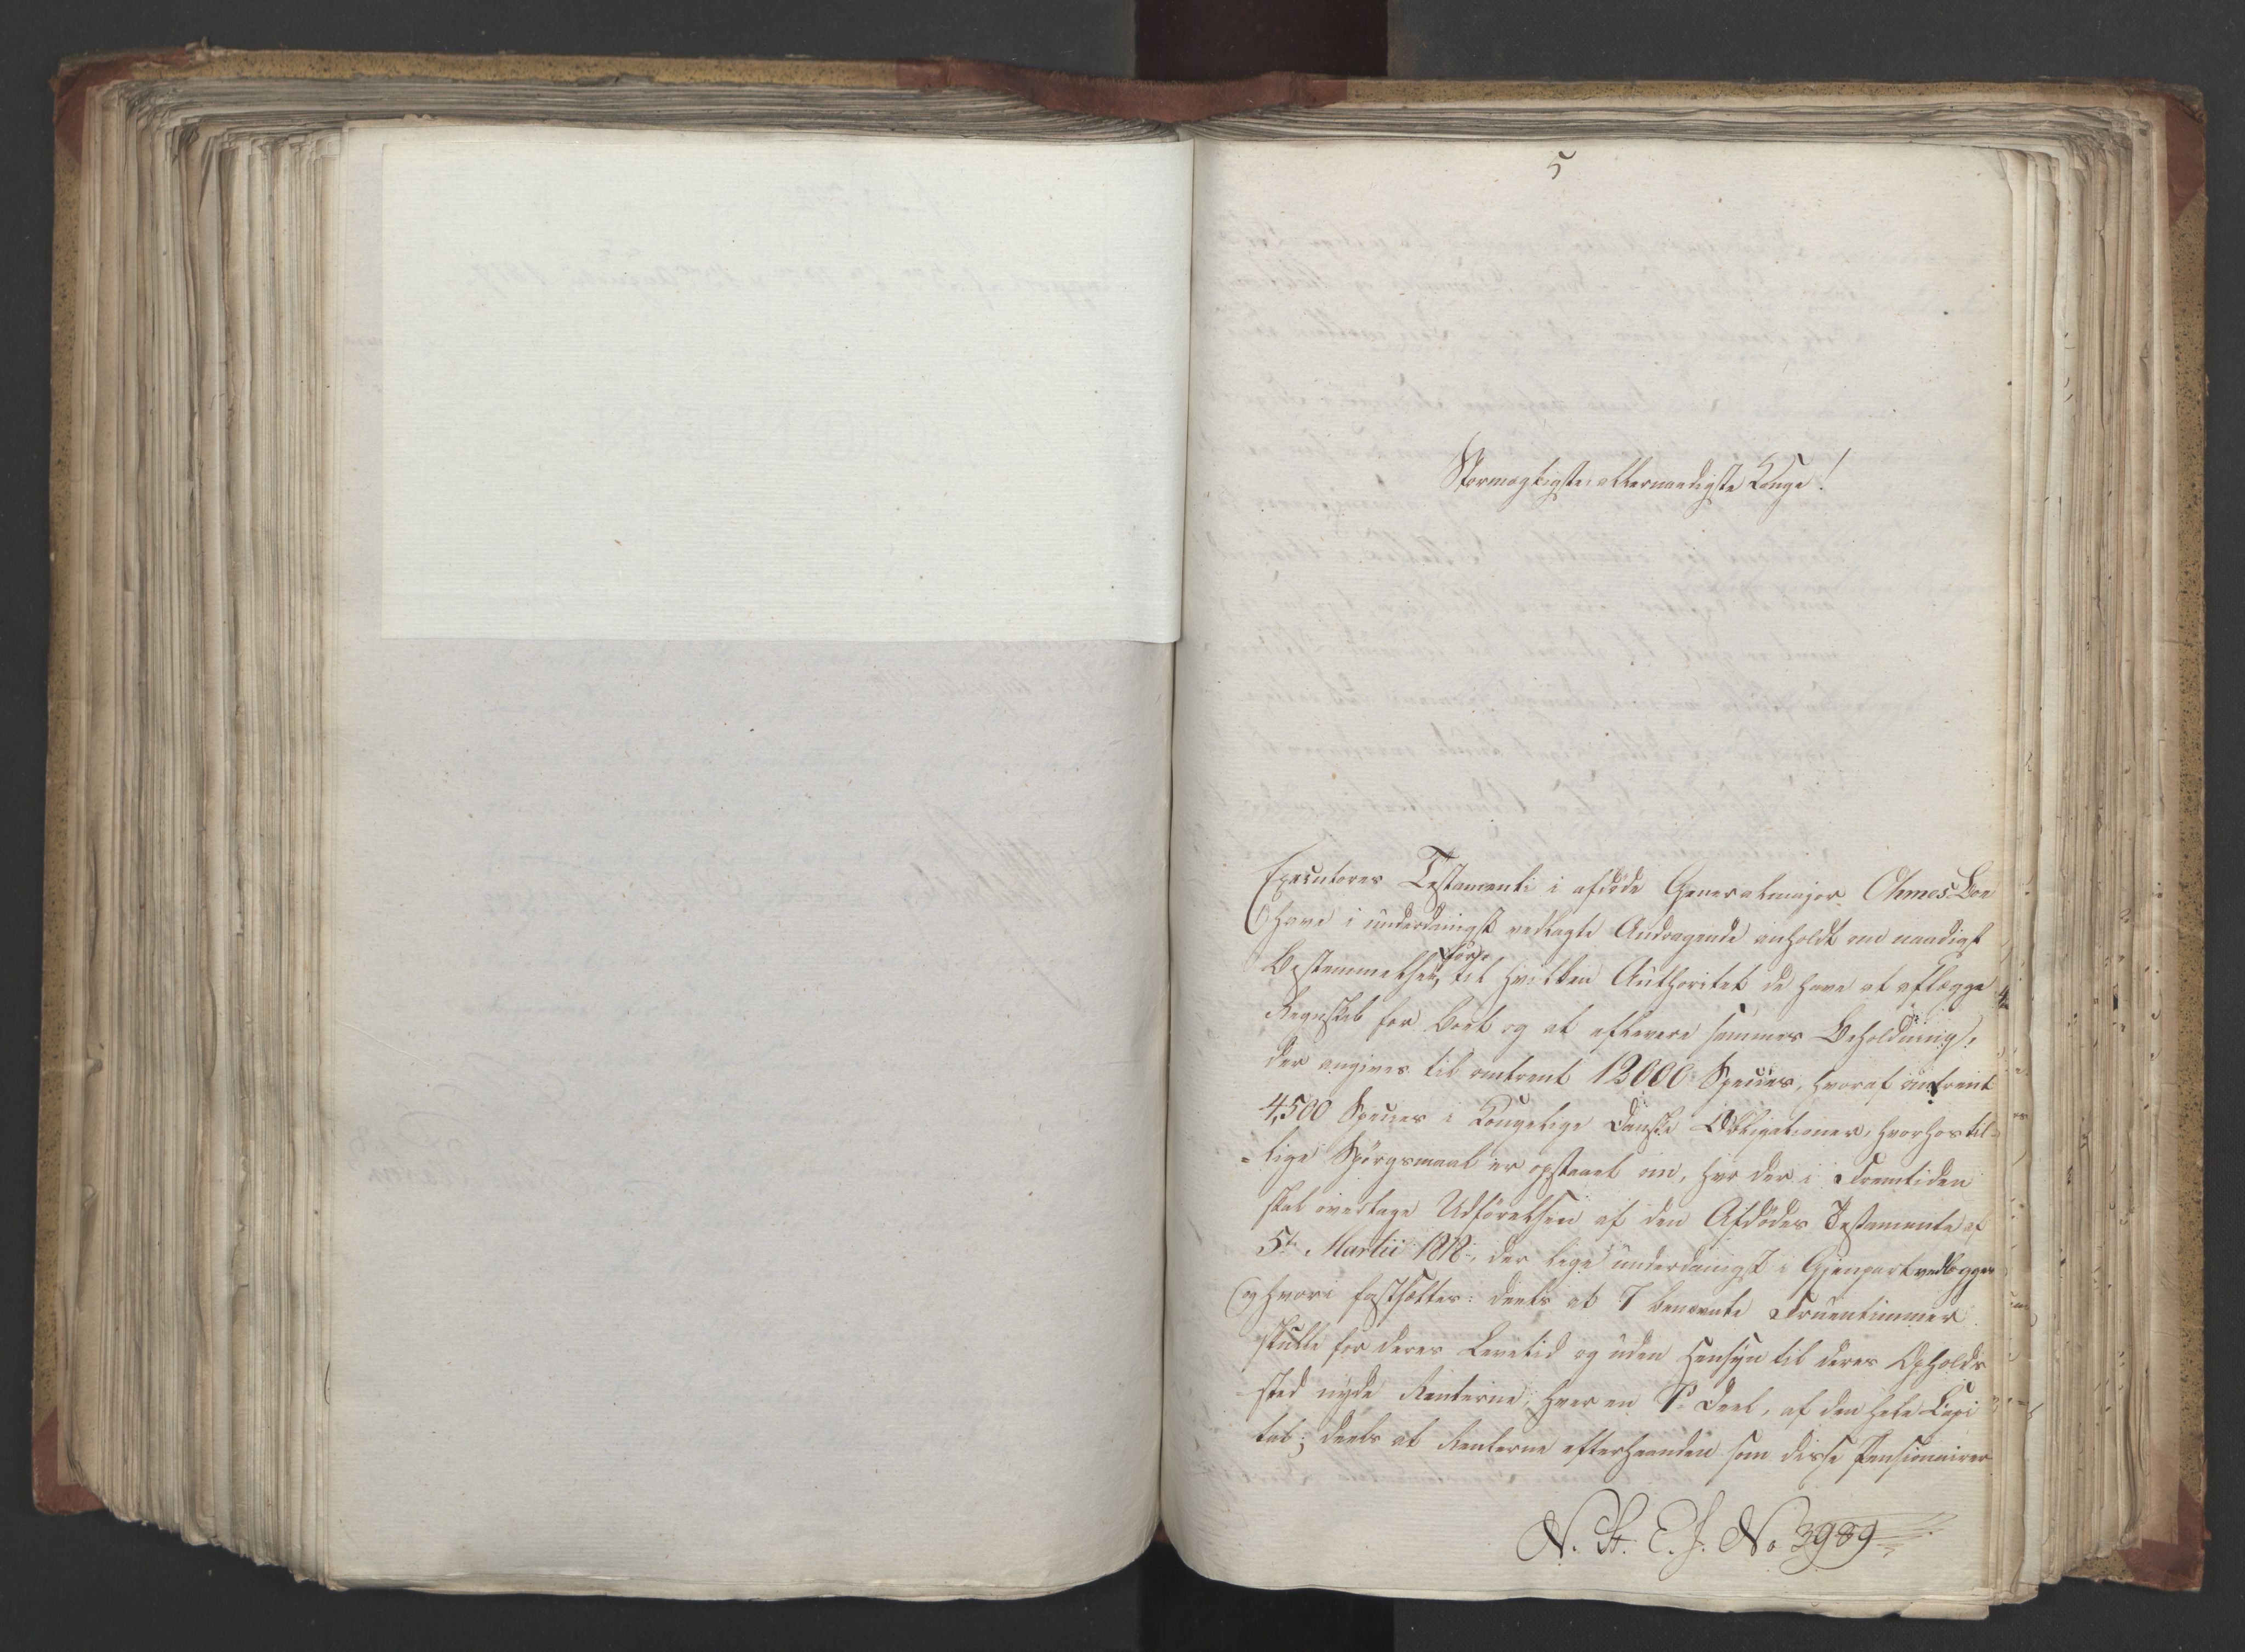 5
Stormægtigste, allernaadigste Konge!
Executores Testamenti i afdøde Generalmajor Ohmes Boe
have i underdanigst vedlagte Andragende anholdt om naadigst
Bestemmelse, for til hvilken Authoritet de have at aflægge
Regnskab for Boet og at aflevere sammes Beholdning,
der angives til omtrent 12000 Species, hvoraf omtrent
4,500 Species i Kongelige Danske Obligationer, hvorhos til-
-lige Spörgsmaal er opstaaet om, hvo der i Fremtiden
skal overtage Udförelsen af den Afdödes Testamente af
5te Martii 1818, der lige underdanigst i Gjenpart vedlægges
og hvori fastsættes: deels at 7 benævnte Fruentimmer
skulle for deres Levetid og uden Hensyn til deres Opholds
sted nyde Renterne, hver en Deel, af den hele Capi
tal; deels at Renterne efterhaanden som disse Pensionairer
N. St. E. J. No 3989